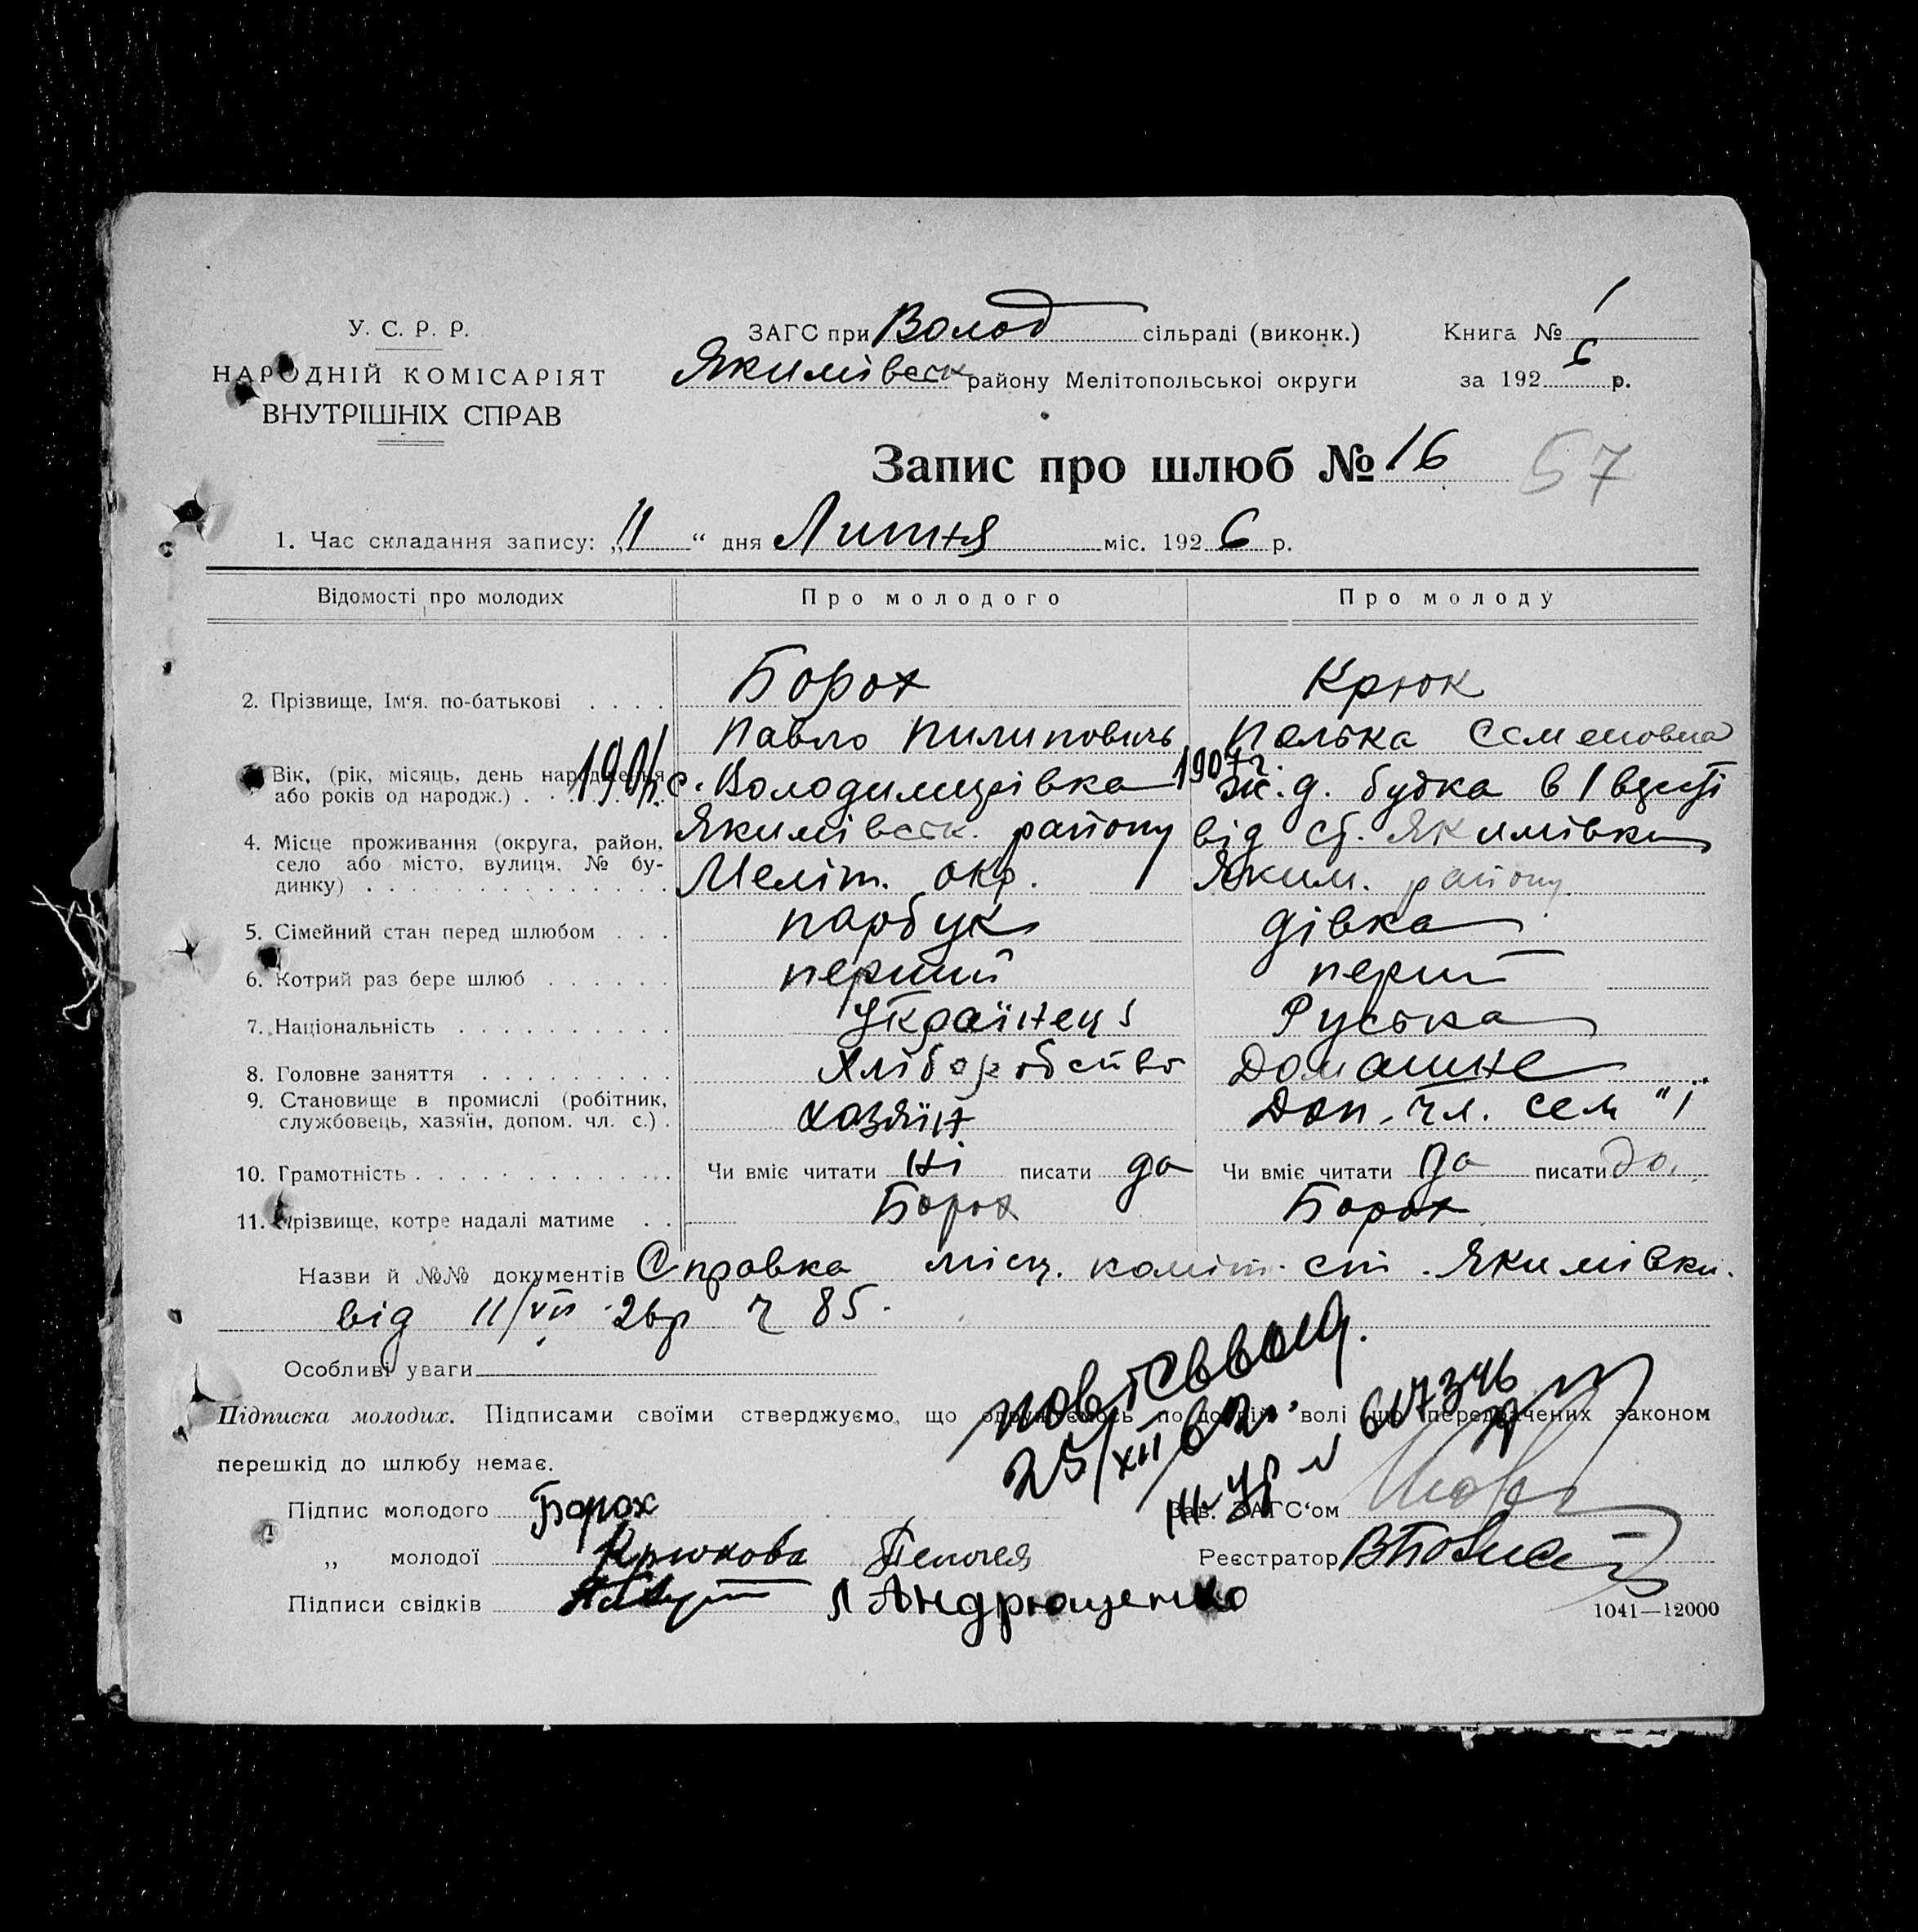 У. С. Р. Р.
НАРОДНІЙ КОМІСАРІЯТ
ВНУТРІШНІХ СПРАВ
ЗАГС при Волод сільраді (виконк.)
Якимівськ району Мелітопольської округи
Книга № 1
за 192 6 р.
Запис про шлюб № 16
57
1. Час складання запису: „11“ дня Липня міс. 192 6 р.
Відомості про молодих Про молодого Про молоду
2. Прізвище, Ім‘я. по-батькові . . . . Борох Крюк
Павло Пилиповичь Полька Семеновна
3. Вік, (рік, місяць, день народження
або років од народж.) . . . . . 1907г.
с. Володимирівка ж.д. будка в 1
4. Місце проживання (округа, район,
село або місто, вулиця, № бу-
динку) . . . . . . . . . . . . . .
Якимівськ. району від ст. Якимівки
Меліт. окр. Яким. району
5. Сімейний стан перед шлюбом . . . парубук дівка
6. Котрий раз бере шлюб . . . . . . перший перш
7. Національність . . . . . . . . . . Українець Руська
8. Головне заняття . . . . . . . . . Хліборобство Домашнє
9. Становище в промислі (робітник,
службовець, хазяїн, допом. чл. с.) . хазяїн Доп. чл. сем"ї
10. Грамотність . . . . . . . . . . . . Чи вміє читати ні писати да Чи вміє читати да писати да
11. Прізвище, котре надалі матиме . . Борох Борох
Назви й №№ документів Справка місц. коміт. ст. Якимівки.
від 11/VII 26р ч 85.
Особливі уваги
Підписка молодих. Підписами своїми стверджуємо, що одружуємось по добрій волі що передбачених законом
перешкід до шлюбу немає.
25/XII 62
III-УР № 617346
Підпис молодого Борох
Зав. ЗАГС‘ом
„ молодої Крюкова Пелагея
Реєстратор
Підписи свідків Л Андрющенко
1041—12000